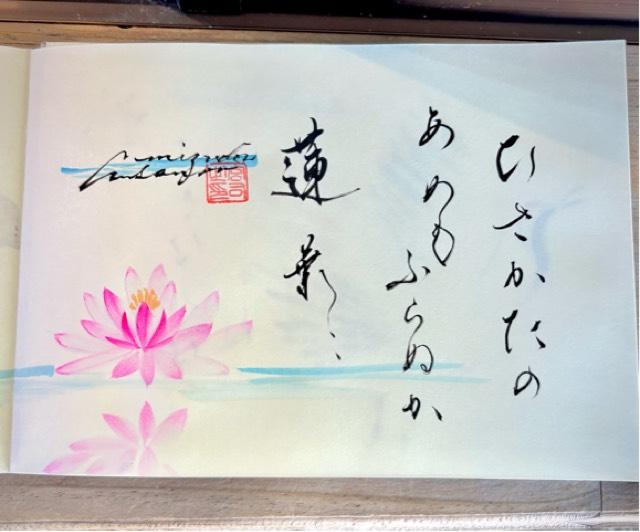 ひさかたの
あめもふらぬか
蓮葉に